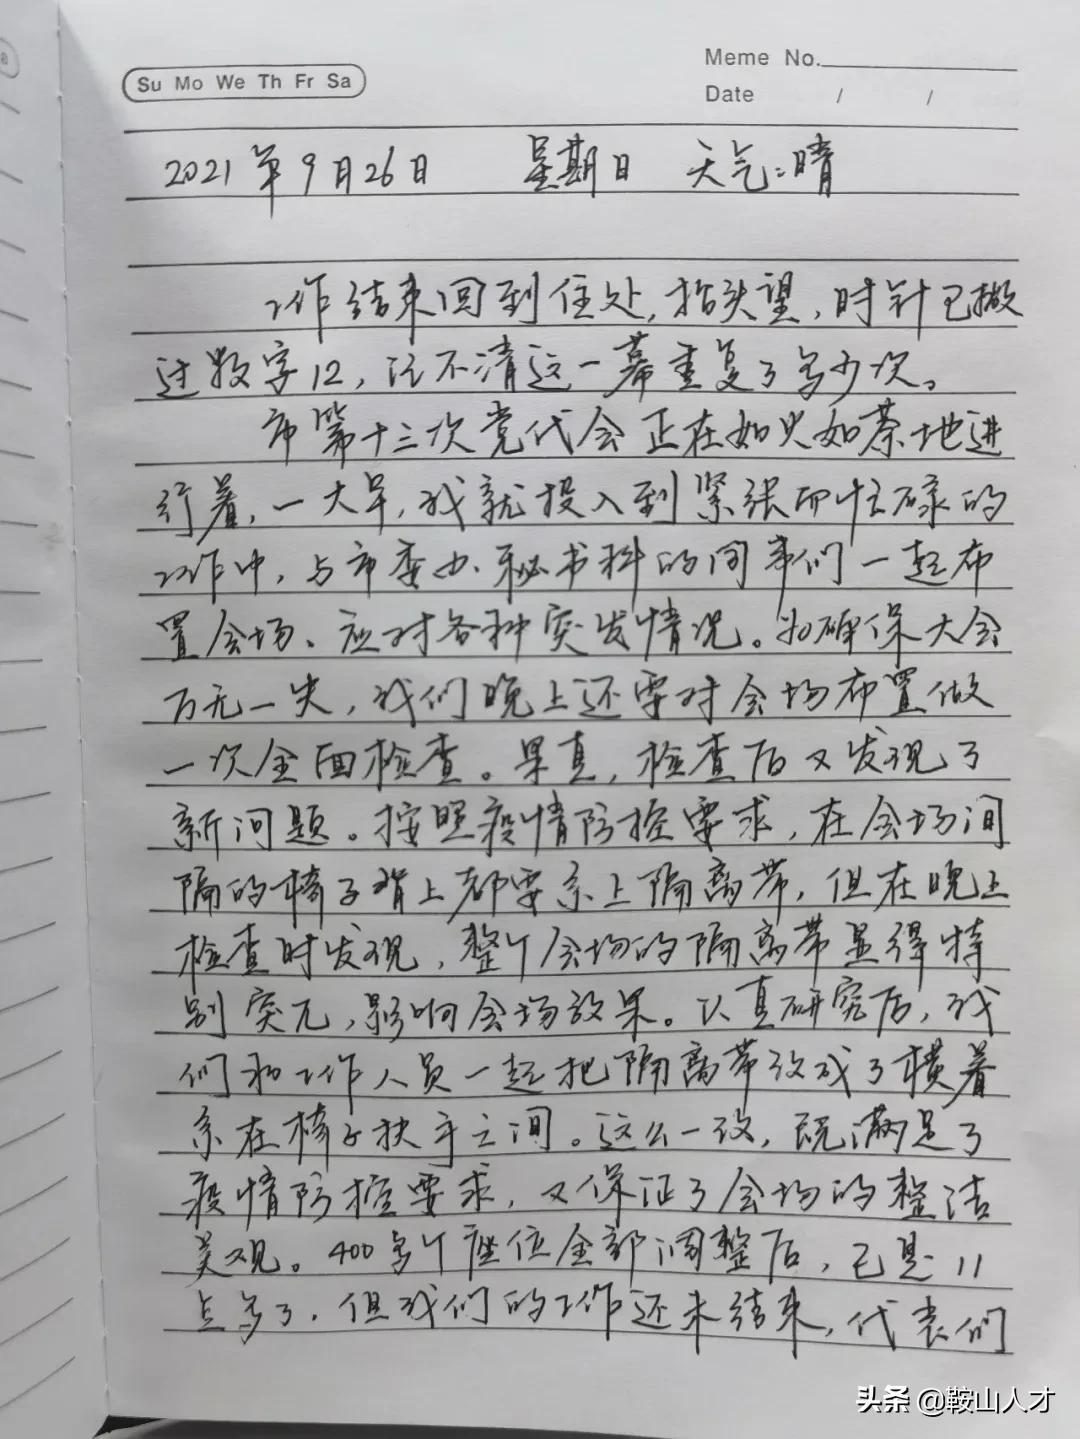 Su Mo We Th Fr Sa
Meme No.
Date / /
2021年9月26日 星期日 天气:晴
工作结束回到住处,抬头望,时针已搬
过数字12,记不清这一幕重复了多少次。
市第十三次党代会正在如火如荼地进
行着,一大早,我就投入到紧张而忙碌的
工作中,与市委办秘书科的同事们一起布
置会场、应对各种突发情况。为确保大会
万无一失,我们晚上还要对会场布置做
一次全面检查。果真,检查后又发现了
新问题。按照疫情防控要求,在会场间
隔的椅子背上都要系上隔离带,但在晚上
检查时发现,整个会场的隔离带显得特
别突兀,影响会场效果。认真研究后,我
们和工作人员一起把隔离带改成了横着
系在椅子扶手之间。这么一改,既满足了
疫情防控要求,又保证了会场的整洁
美观。400多个座位全部调整后,已是11
点多了,但我们的工作还未结束,代表们
头条 @鞍山人才